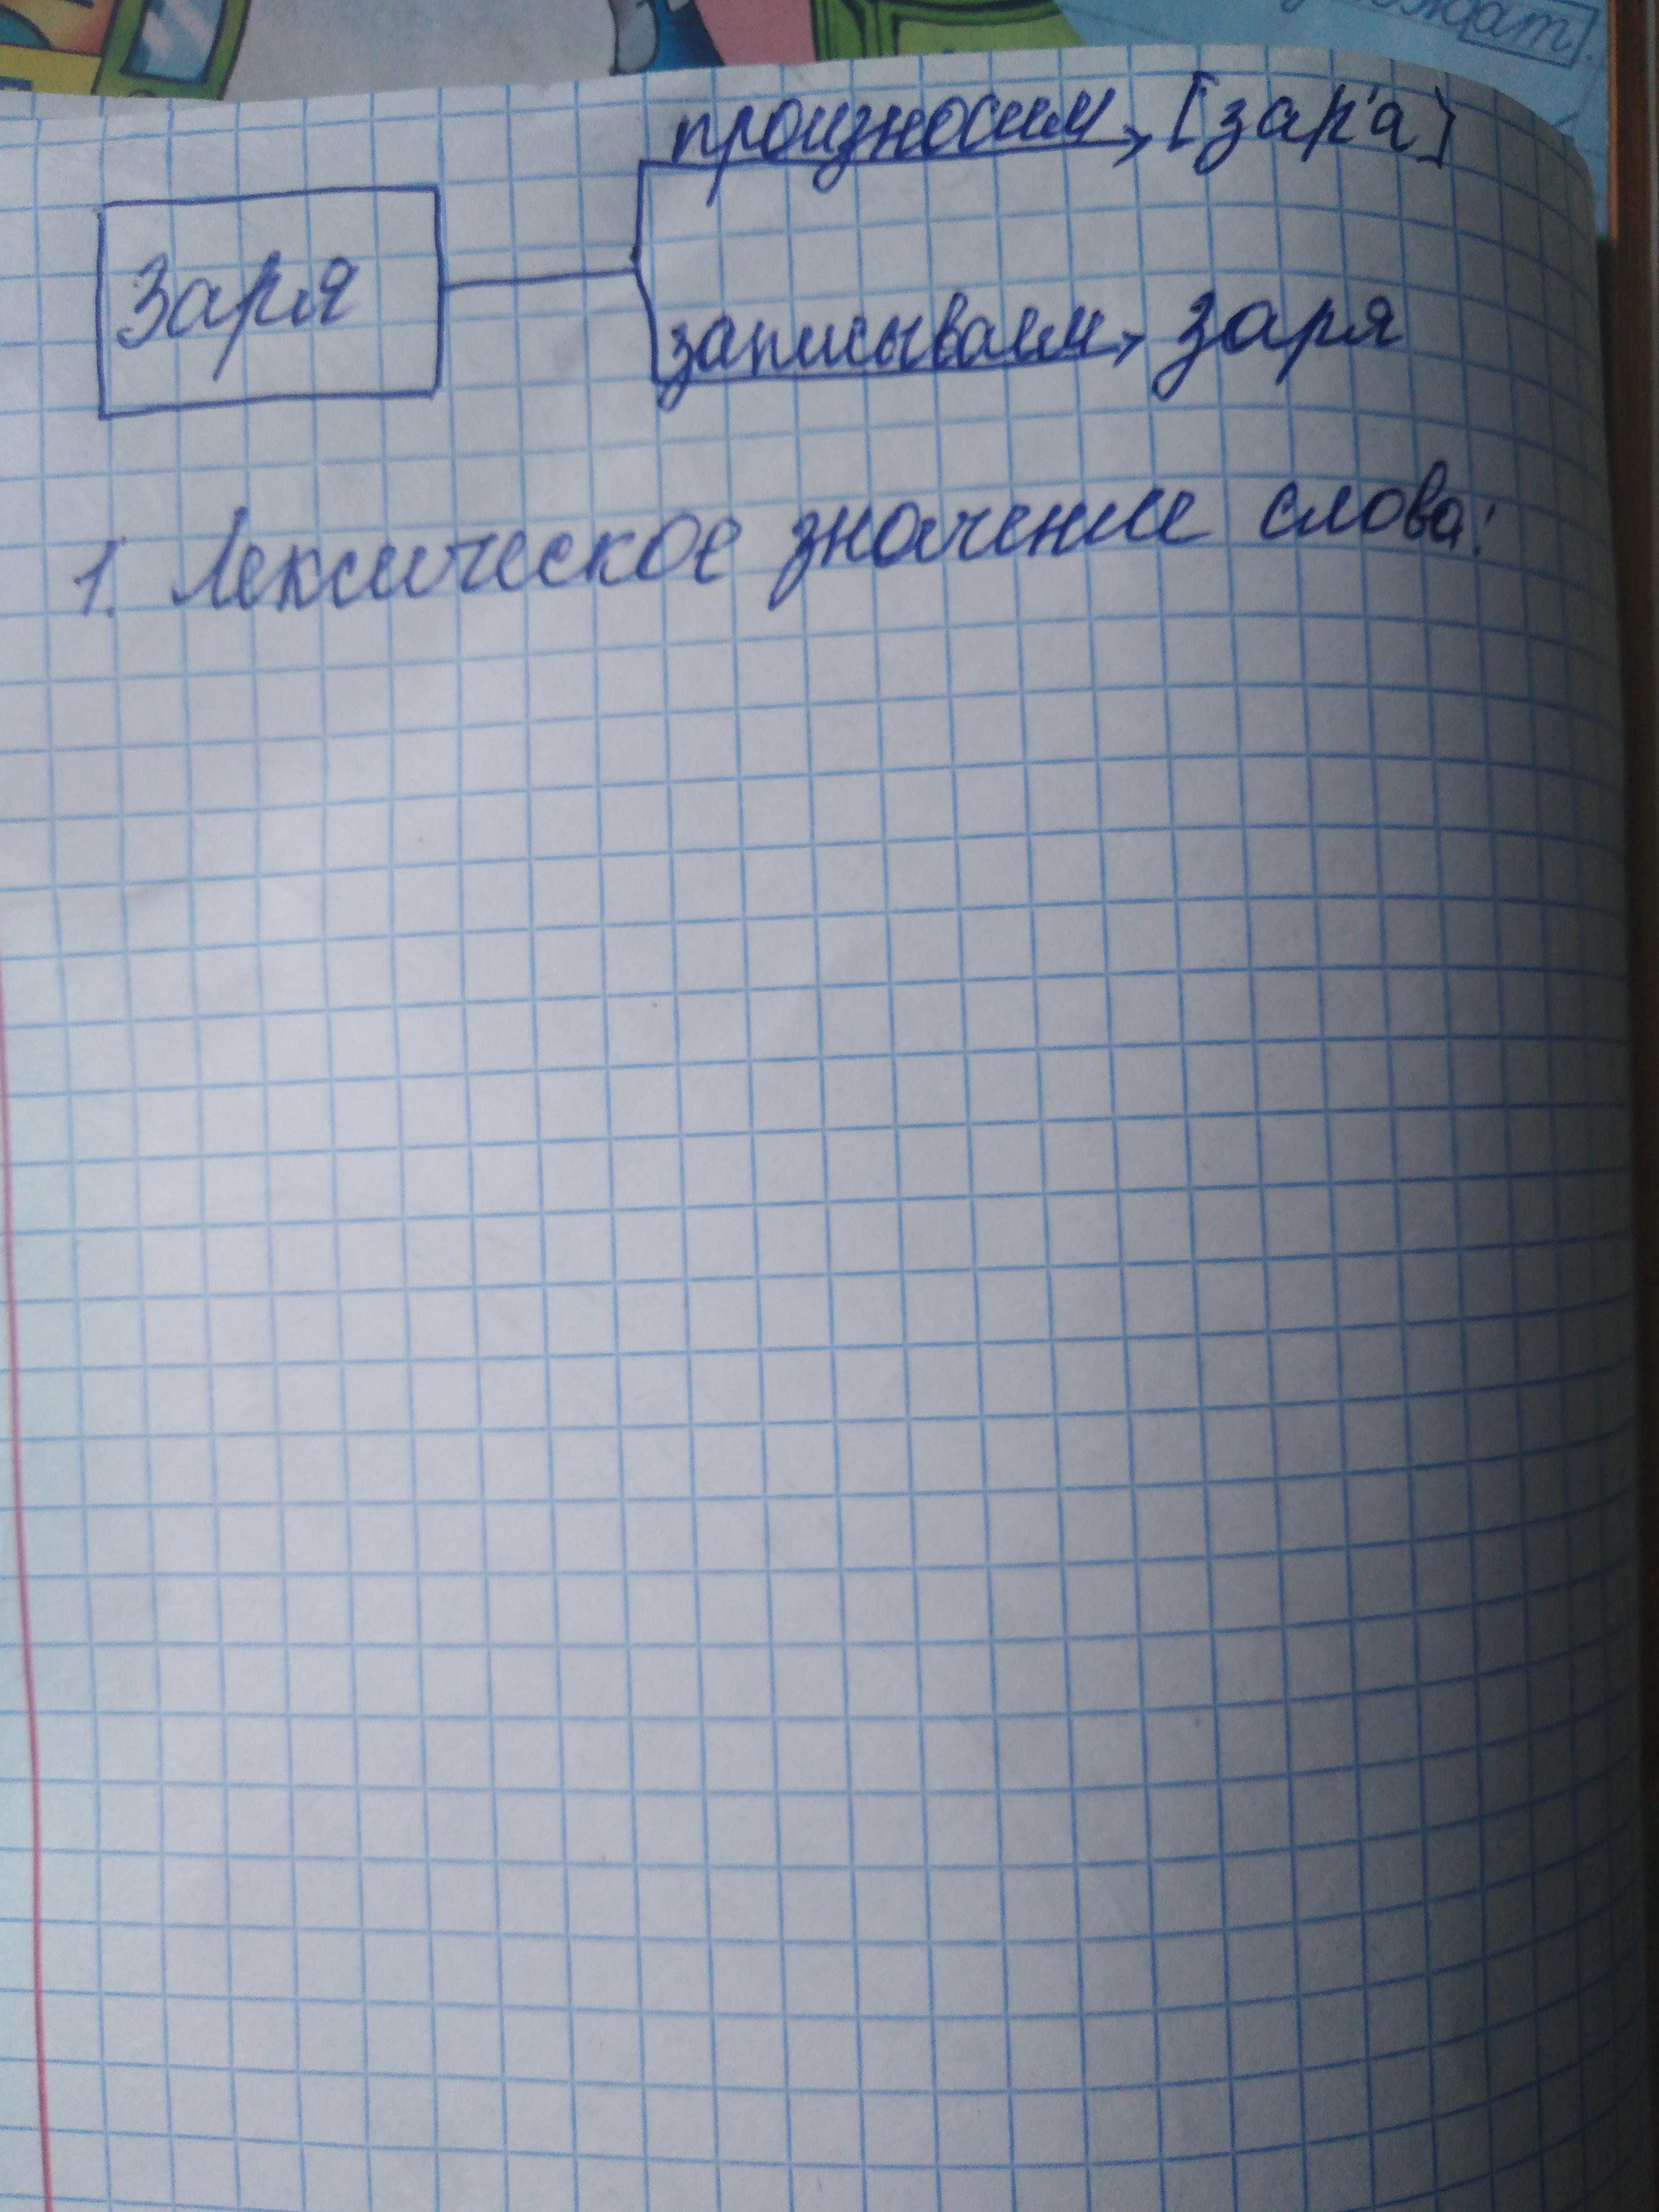 произносим [зар'а]
Заря
записываем заря
1. Лексическое значение слова: